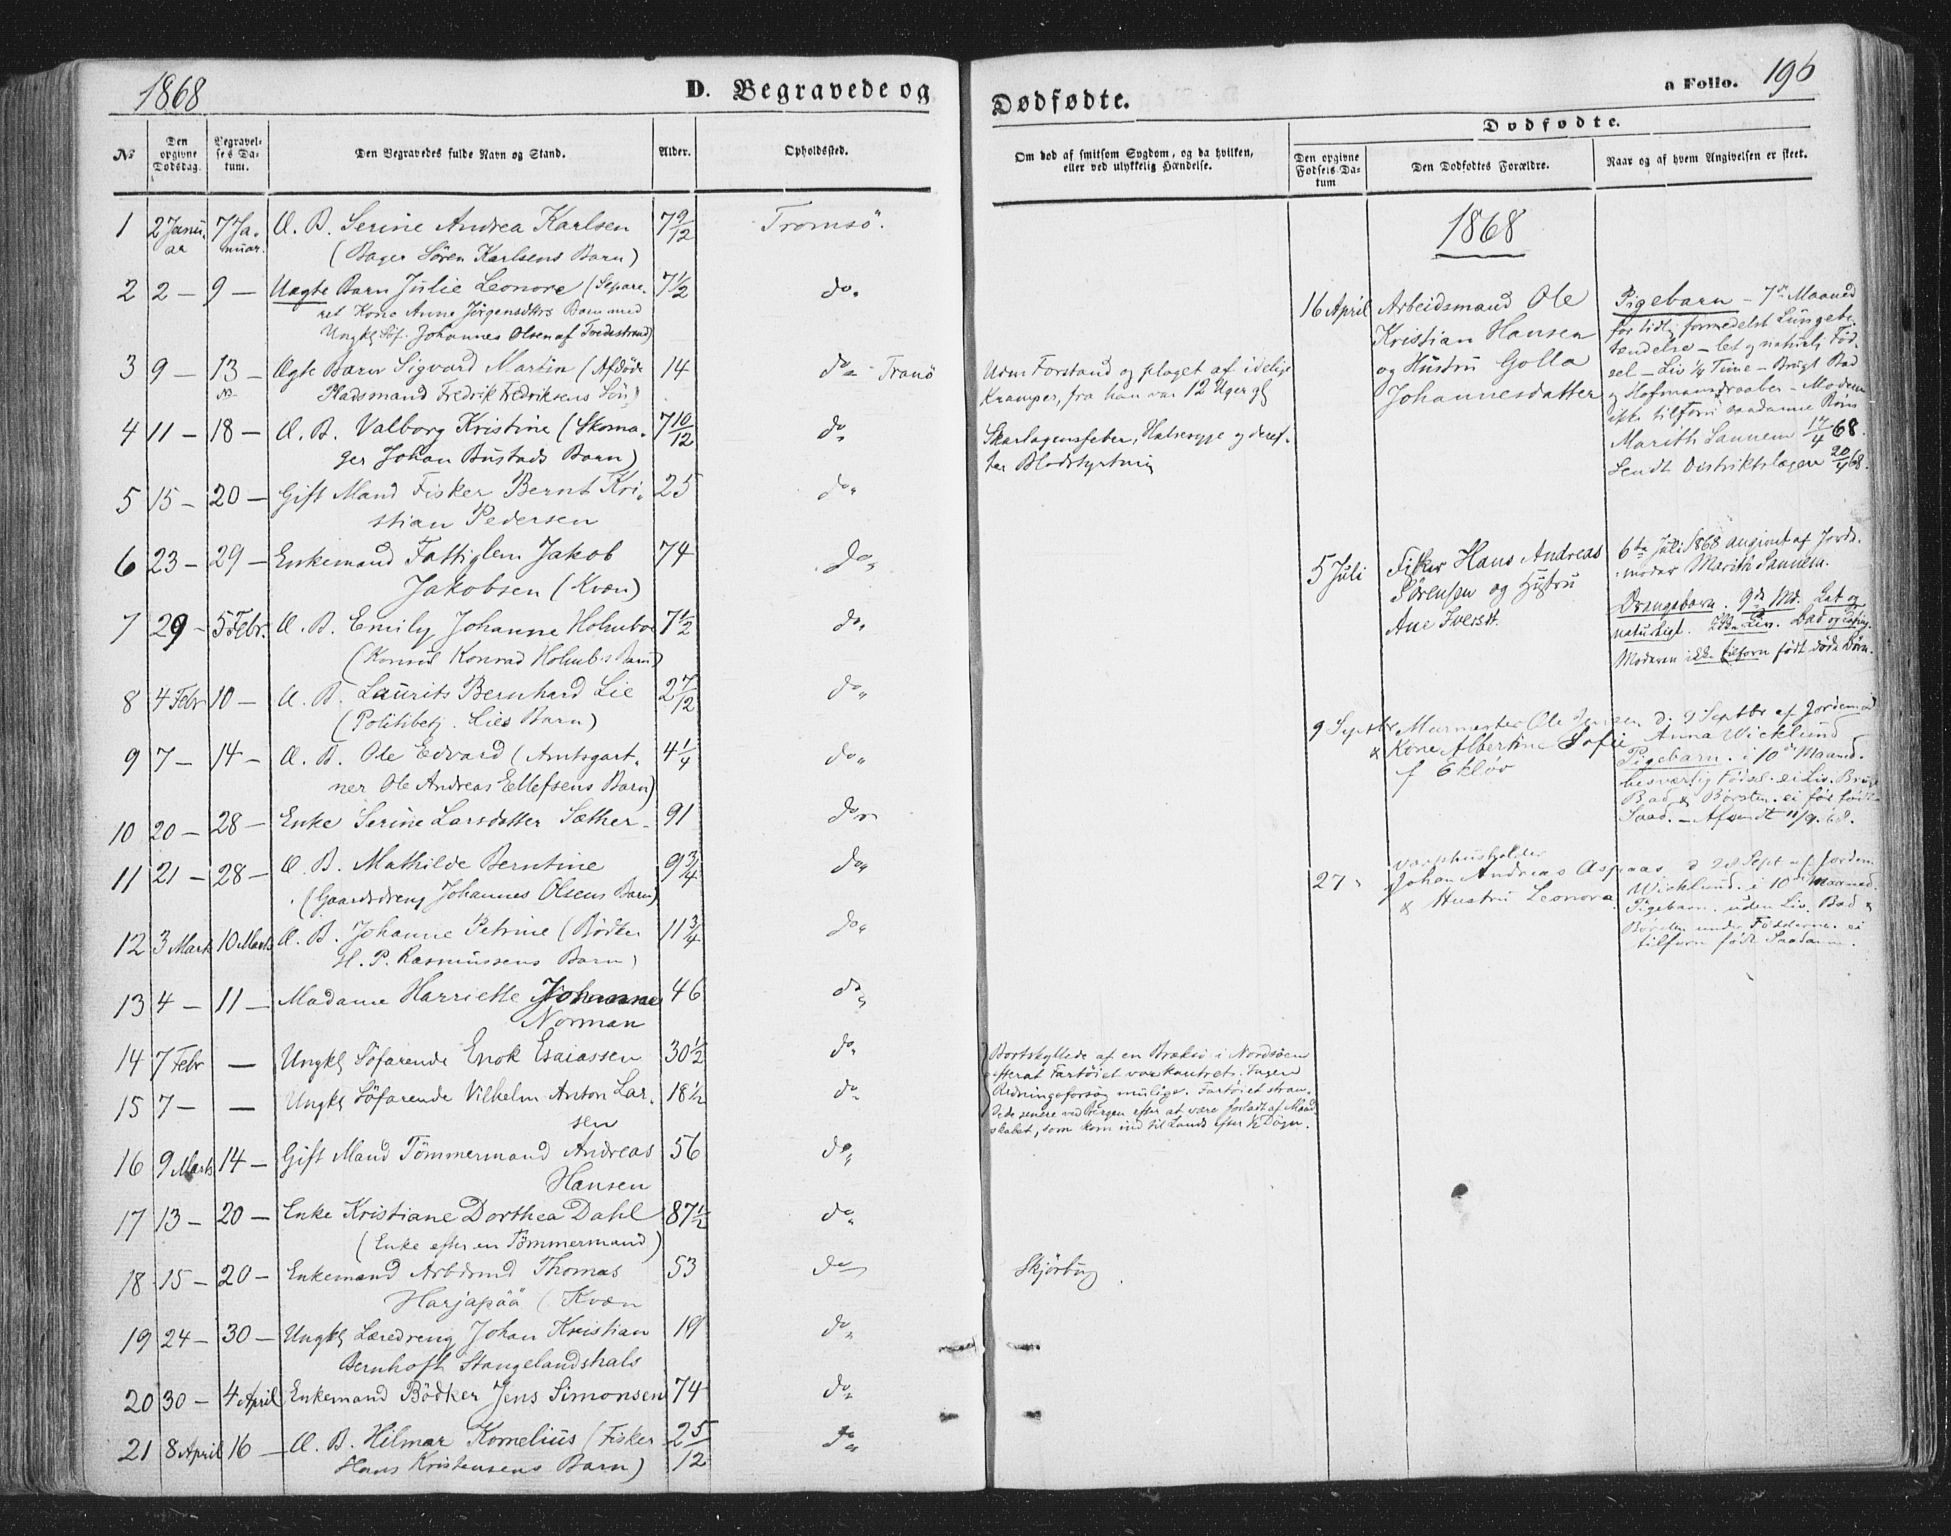 1868
D. Begravede og
Dødfødte.
a Folio. 196
No
Den opgivne Dødsdag.
Begravelses Datum.
Den Begravedes fulde Navn og Stand.
Alder.
Opholdssted.
Om død af smitsom Sygdom, og da hvilken, eller ved ulykkelig Hændelse.
Dødfødte.
Den opgivne Fødsels-Datum
Den Dødfødtes Forældre.
Naar og af hvem Angivelsen er skeet.
1 2 Janu- 7 Ja- Æ. B. Serine Andrea Karlsen 7 9/12 Tromsö.
ar nuar. (Bager Sören Karlsens Barn)
2 2 – 9 – Uægte Barn Julie Leonore (Separe- 7 1/2 do.
ret Kone Anne Jörgensdtrs Barn med
Ungkl Söf. Johannes Olsen af Tvedestrand)
3 9 – 13 – Ægte Barn Sigvard Martin (Afdöde 14 do Tranö
Pladsmand Fredrik Fredriksens Sön)
4 11 – 18 – Æ. B. Valborg Kristine (Skoma- 7 10/12 do
ger Johan Bustads Barn)
5 15 – 20 – Gift Mand Fisker Bernt Kri- 25 do
stian Pedersen
6 23 – 29 – Enkemand Fattiglem Jakob 74 do
Jakobsen (Kvæn)
7 29 – 5 Febr. Æ. B. Emily Johanne Holmboe 7 1/2 do
(Konsul Konrad Holmboes Barn)
8 4 Febr 10 – Æ. B. Laurits Bernhard Lie 2 7/12 do
(Politibetj. Lies Barn)
9 7 – 14 – Æ. B. Ole Edvard (Amtsgart- 4 1/4 do
ner Ole Andreas Ellefsens Barn)
10 20 – 28 – Enke Serine Larsdatter Sæther 91 do
11 21 – 28 – Æ. B. Mathilde Berntine 9 3/4 do
(Gaardsdreng Johannes Olsens Barn)
12 3 Marts 10 Marts Æ. B. Johanne Petrine (Bödker 11 3/4 do
H. P. Rasmussens Barn)
13 4 – 11 – Madame Harriette Johanne 46 do
Norman
14 7 Febr – Ungkl Söfarende Enok Esaiassen 30 1/2 do
15 7 – – Ungkl Söfarende Vilhelm Anton Lar- 18 1/2 do
sen
16 9 Marts 14 – Gift Mand Tömmermand Andreas 56 do
Hansen
17 13 – 20 – Enke Kristiane Dorthea Dahl 87 1/2 do
(Enke efter en Tömmermand)
18 15 – 20 – Enkemand Arbdmd Thomas 53 do
Harjapää (Kvæn
19 24 – 30 – Ungkl Læredreng Johan Kristian 19 do
Bernhoft Stangelandshals
20 30 – 4 April Enkemand Bödker Jens Simonsen 74 do
21 8 April 16 – Æ. B. Hilmar Kornelius (Fisker 2 5/12 do
Hans Kristensens Barn)
Uden Forstand og plaget af idelige
Kramper, fra han var 12 Uger gl
Skarlagensfeber, Halssyge og deref-
ter Blodstyrtning
Bortskyllede af en Bræksö i Nordsöen
efterat Fartöiet var kantret. Ingen
Redningsforsög mulige. Fartöiet stran-
dede senere ved Bergen efter at være forladt af Mand-
skabet, som kom ind til Lands efter 1/2 Dögn.
Skjörbug
1868
16 April Arbeidsmand Ole
Kristian Hansen
og Hustru Golla
Johannesdatter
Pigebarn – 7de Maaned
for tidlig formedelst Lungebe-
tendelse – let og naturlig Föd-
sel – Liv 1/4 Time – Brugt Bad
og Hofmansdraaber – Moderen
ikke tilforn saadanne Börn
Marith Sannem 17/4 68.
Sendt Distriktslægen 20/4 68.
5 Juli Fisker Hans Andreas
Sörensen og Hustru
Ane Iversdt.
6te Juli 1868 angivet af Jorde-
moder Marith Sannem.
Drengebarn. 9de Md. Let og
naturligt. Liv. Bad og
Moderen ikke tilforn födt döde Börn.
9 Septbr Murmester Ole Jensen
& Kone Albertine Sofie
f Eklöv
d. 9 Septbr af Jordemod
Anna Wicklund
Pigebarn. i 10de Maaned.
besværlig Födsel. ei Liv. Brugt
Bad & Börsten. ei för födt
Saad. – Afsendt 11/9.68.
27 " Vaaghusholder
Johan Andreas Aspaas
& Hustru Leonora
d 28 Sept af Jordem
Wicklund. i 10de Maaned.
Pigebarn. uden Liv. Bad &
Börsten under Födderne. ei
tilforn födt Saadanne.